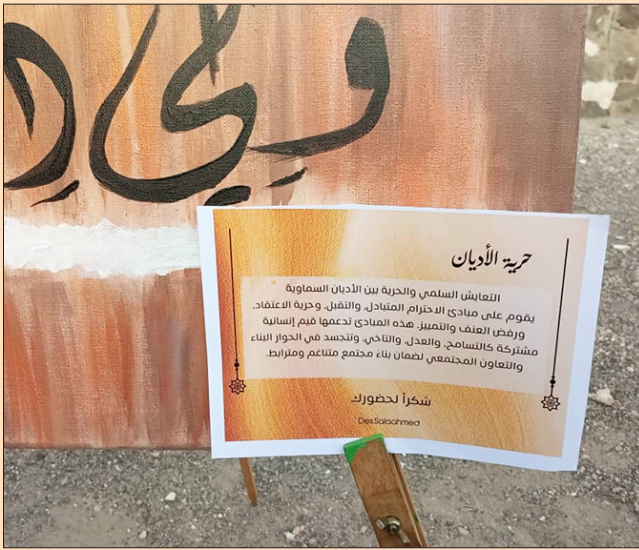 ولي
حرية الأديان
التعايش السلمي والحرية بين الأديان السماوية
يقوم على مبادئ الاحترام المتبادل، والتقبل، وحرية الاعتقاد،
ورفض العنف والتمييز. هذه المبادئ تدعمها قيم إنسانية
مشتركة كالتسامح، والعدل، والتآخي، وتتجسد في الحوار البناء
والتعاون المجتمعي لضمان بناء مجتمع متناغم ومترابط.
شكراً لحضورك
DesSalaahmed